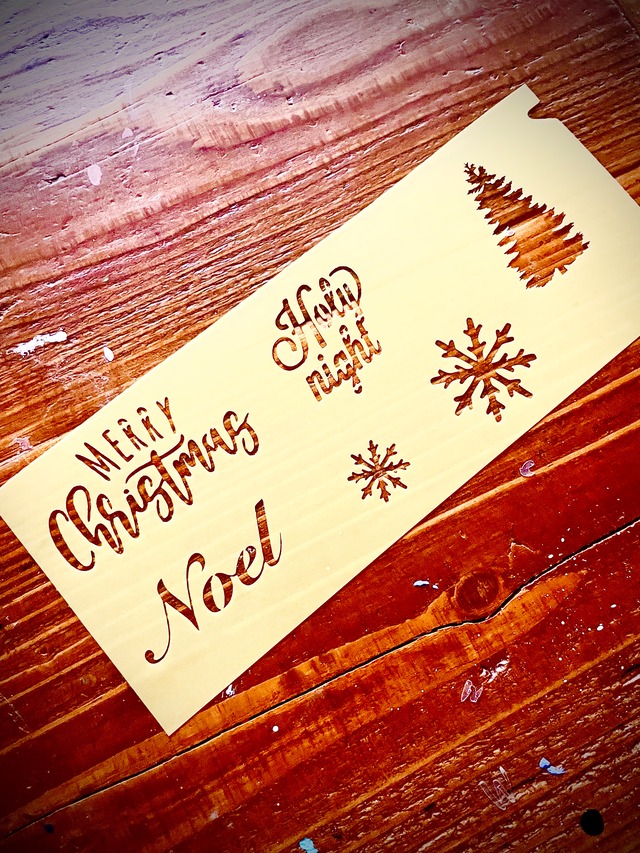 MERRY
Christmas
Noel
Holy
night